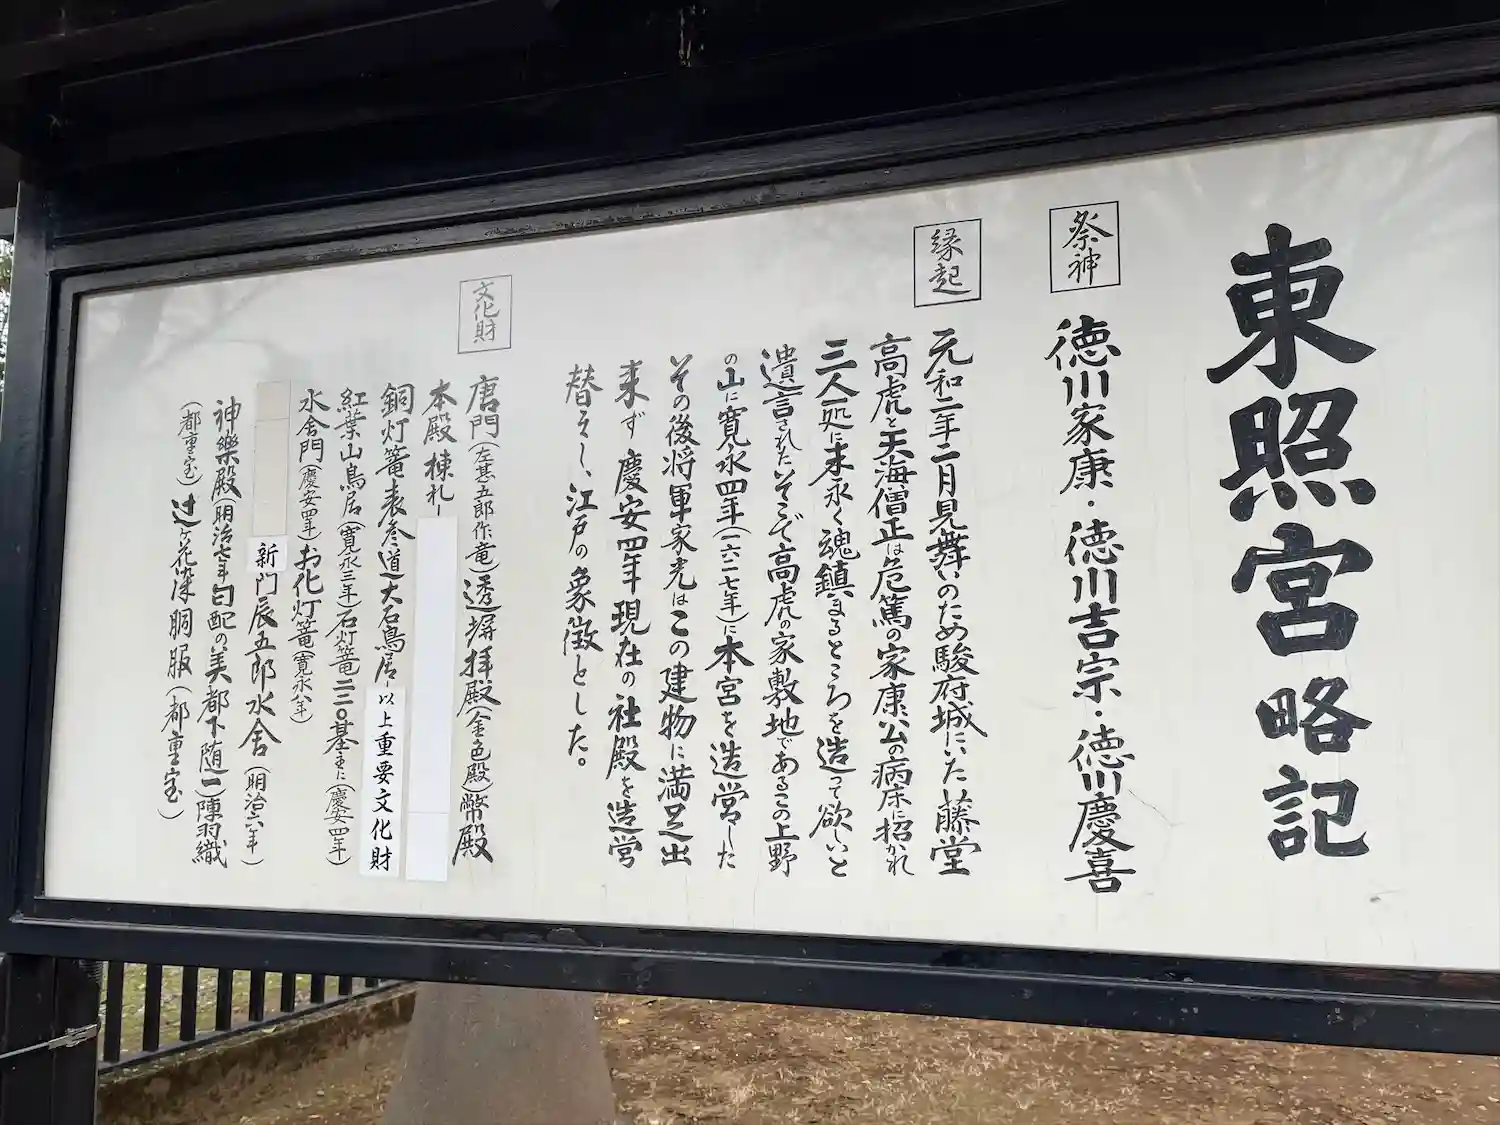 東照宮略記
祭神
徳川家康・徳川吉宗・徳川慶喜
縁起
元和二年二月見舞いのため駿府城にいた藤堂
高虎と天海僧正は危篤の家康公の病床に招かれ
三人一処に末永く魂鎮まるところを造って欲しいと
遺言されたいそこで高虎の家敷地であるこの上野
の山に寛永四年(一六二七年)に本宮を造営した
その後将軍家光はこの建物に満足出
来ず慶安四年現在の社殿を造営
替えし、江戸の象徴とした。
文化財
唐門(左甚五郎作竜)透塀拝殿(金色殿)幣殿
本殿棟札
銅灯篭表参道大石鳥居 以上重要文化財
紅葉山鳥居(寛永三年)石灯篭二二〇基(慶安四年)
水舎門(慶安四年)お化灯篭(寛永八年)
新門辰五郎水舎(明治六年)
神樂殿(明治七年勾配の美都下随一)陳羽織
(都重宝)辻ヶ花染胴服(都重宝)